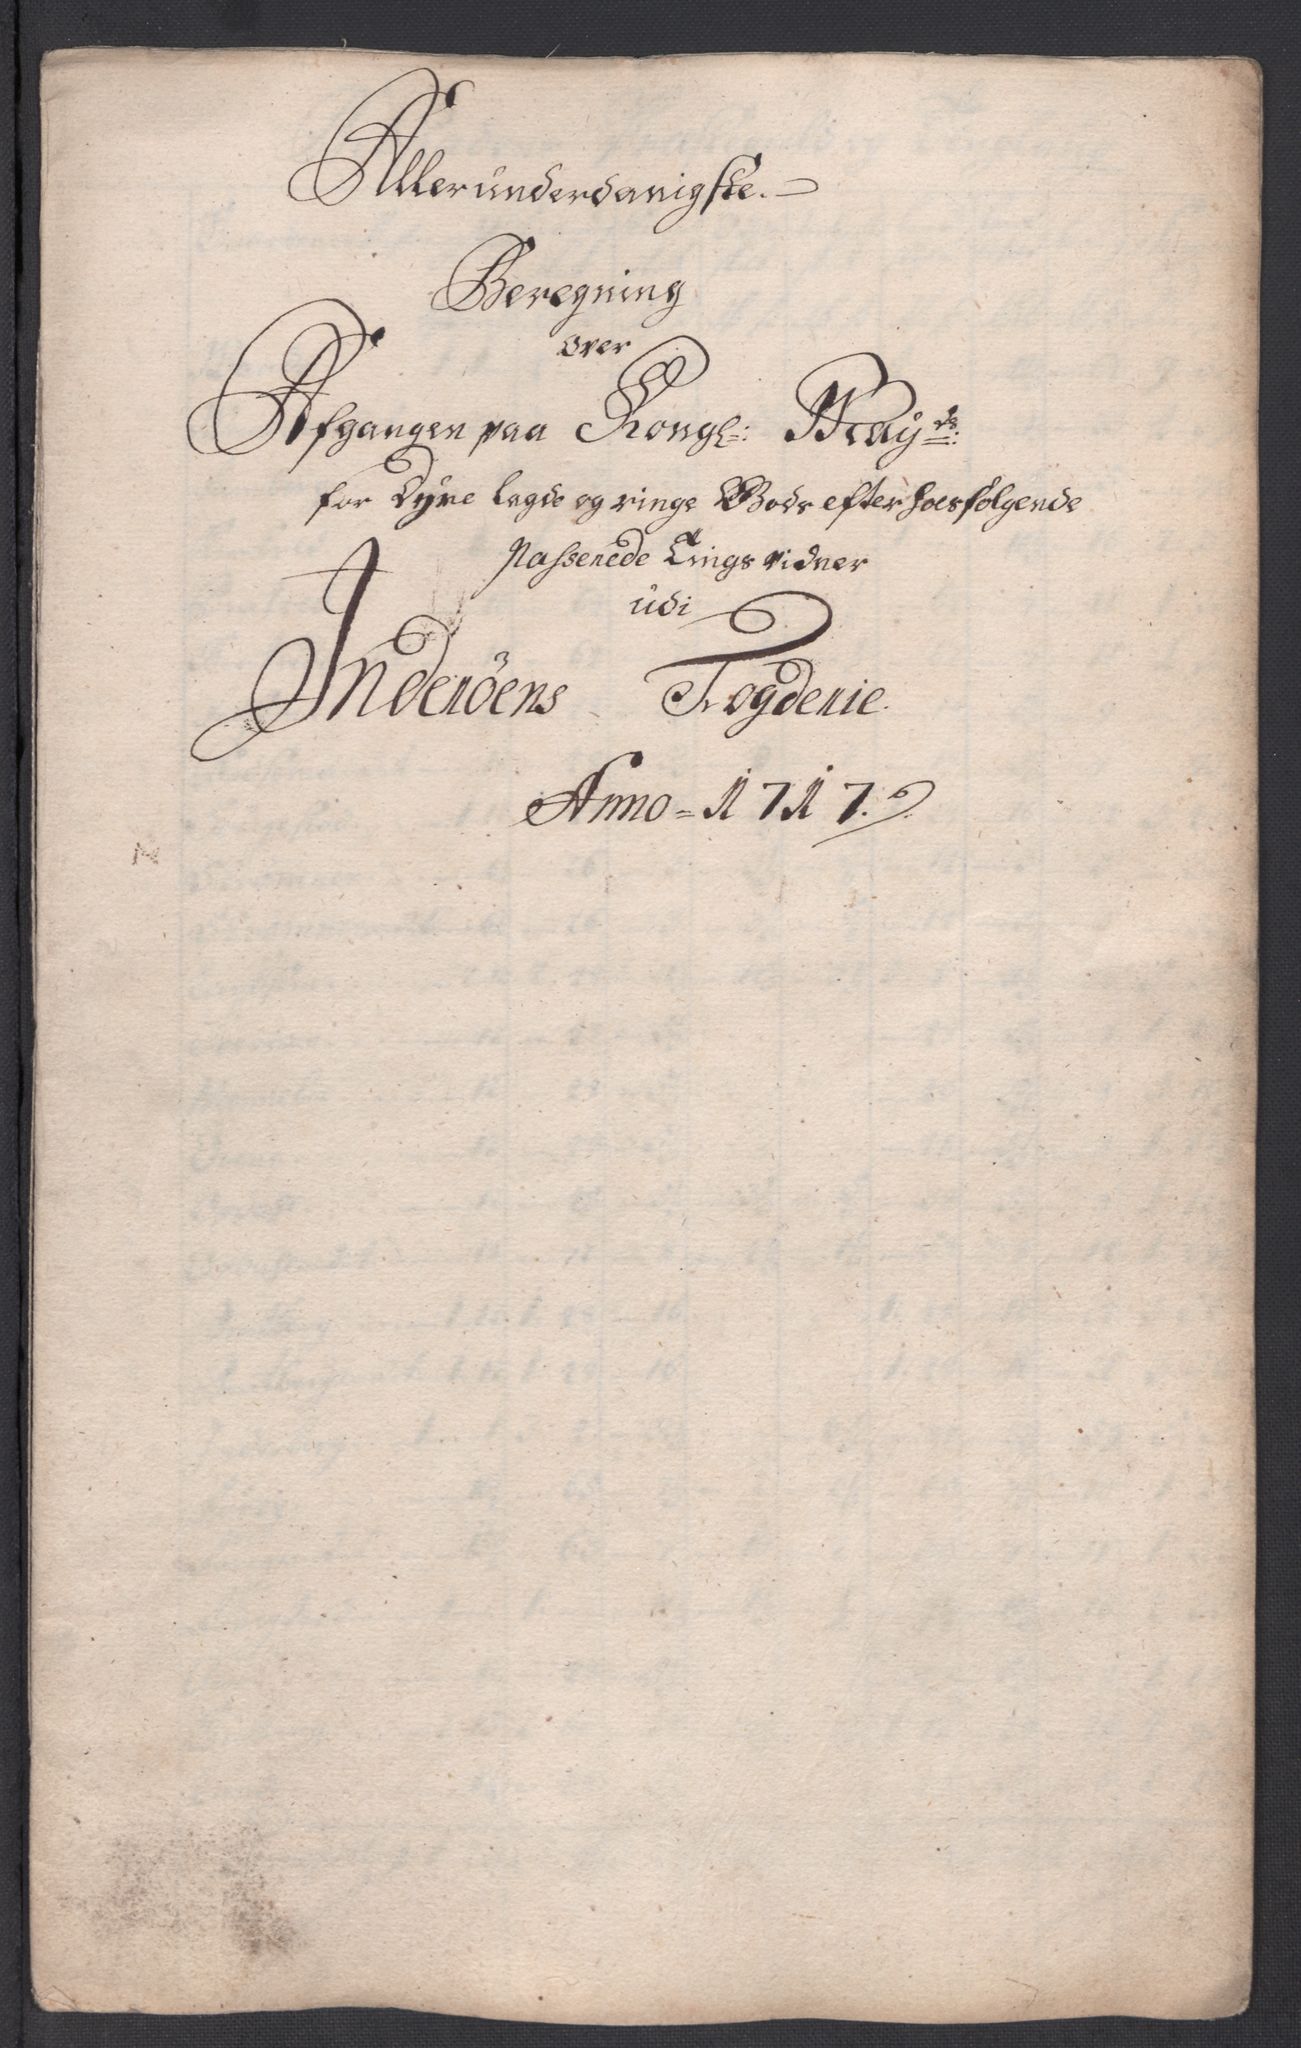 Allerunderdanigste.
Beregning
over
Afgangen paa Kongl: May.ds:
for Dyre lagde og ringe Gods efter hoesfølgende
Passerede Tings vidner
udi
Inderöens Fogderie.
Anno = 1717.